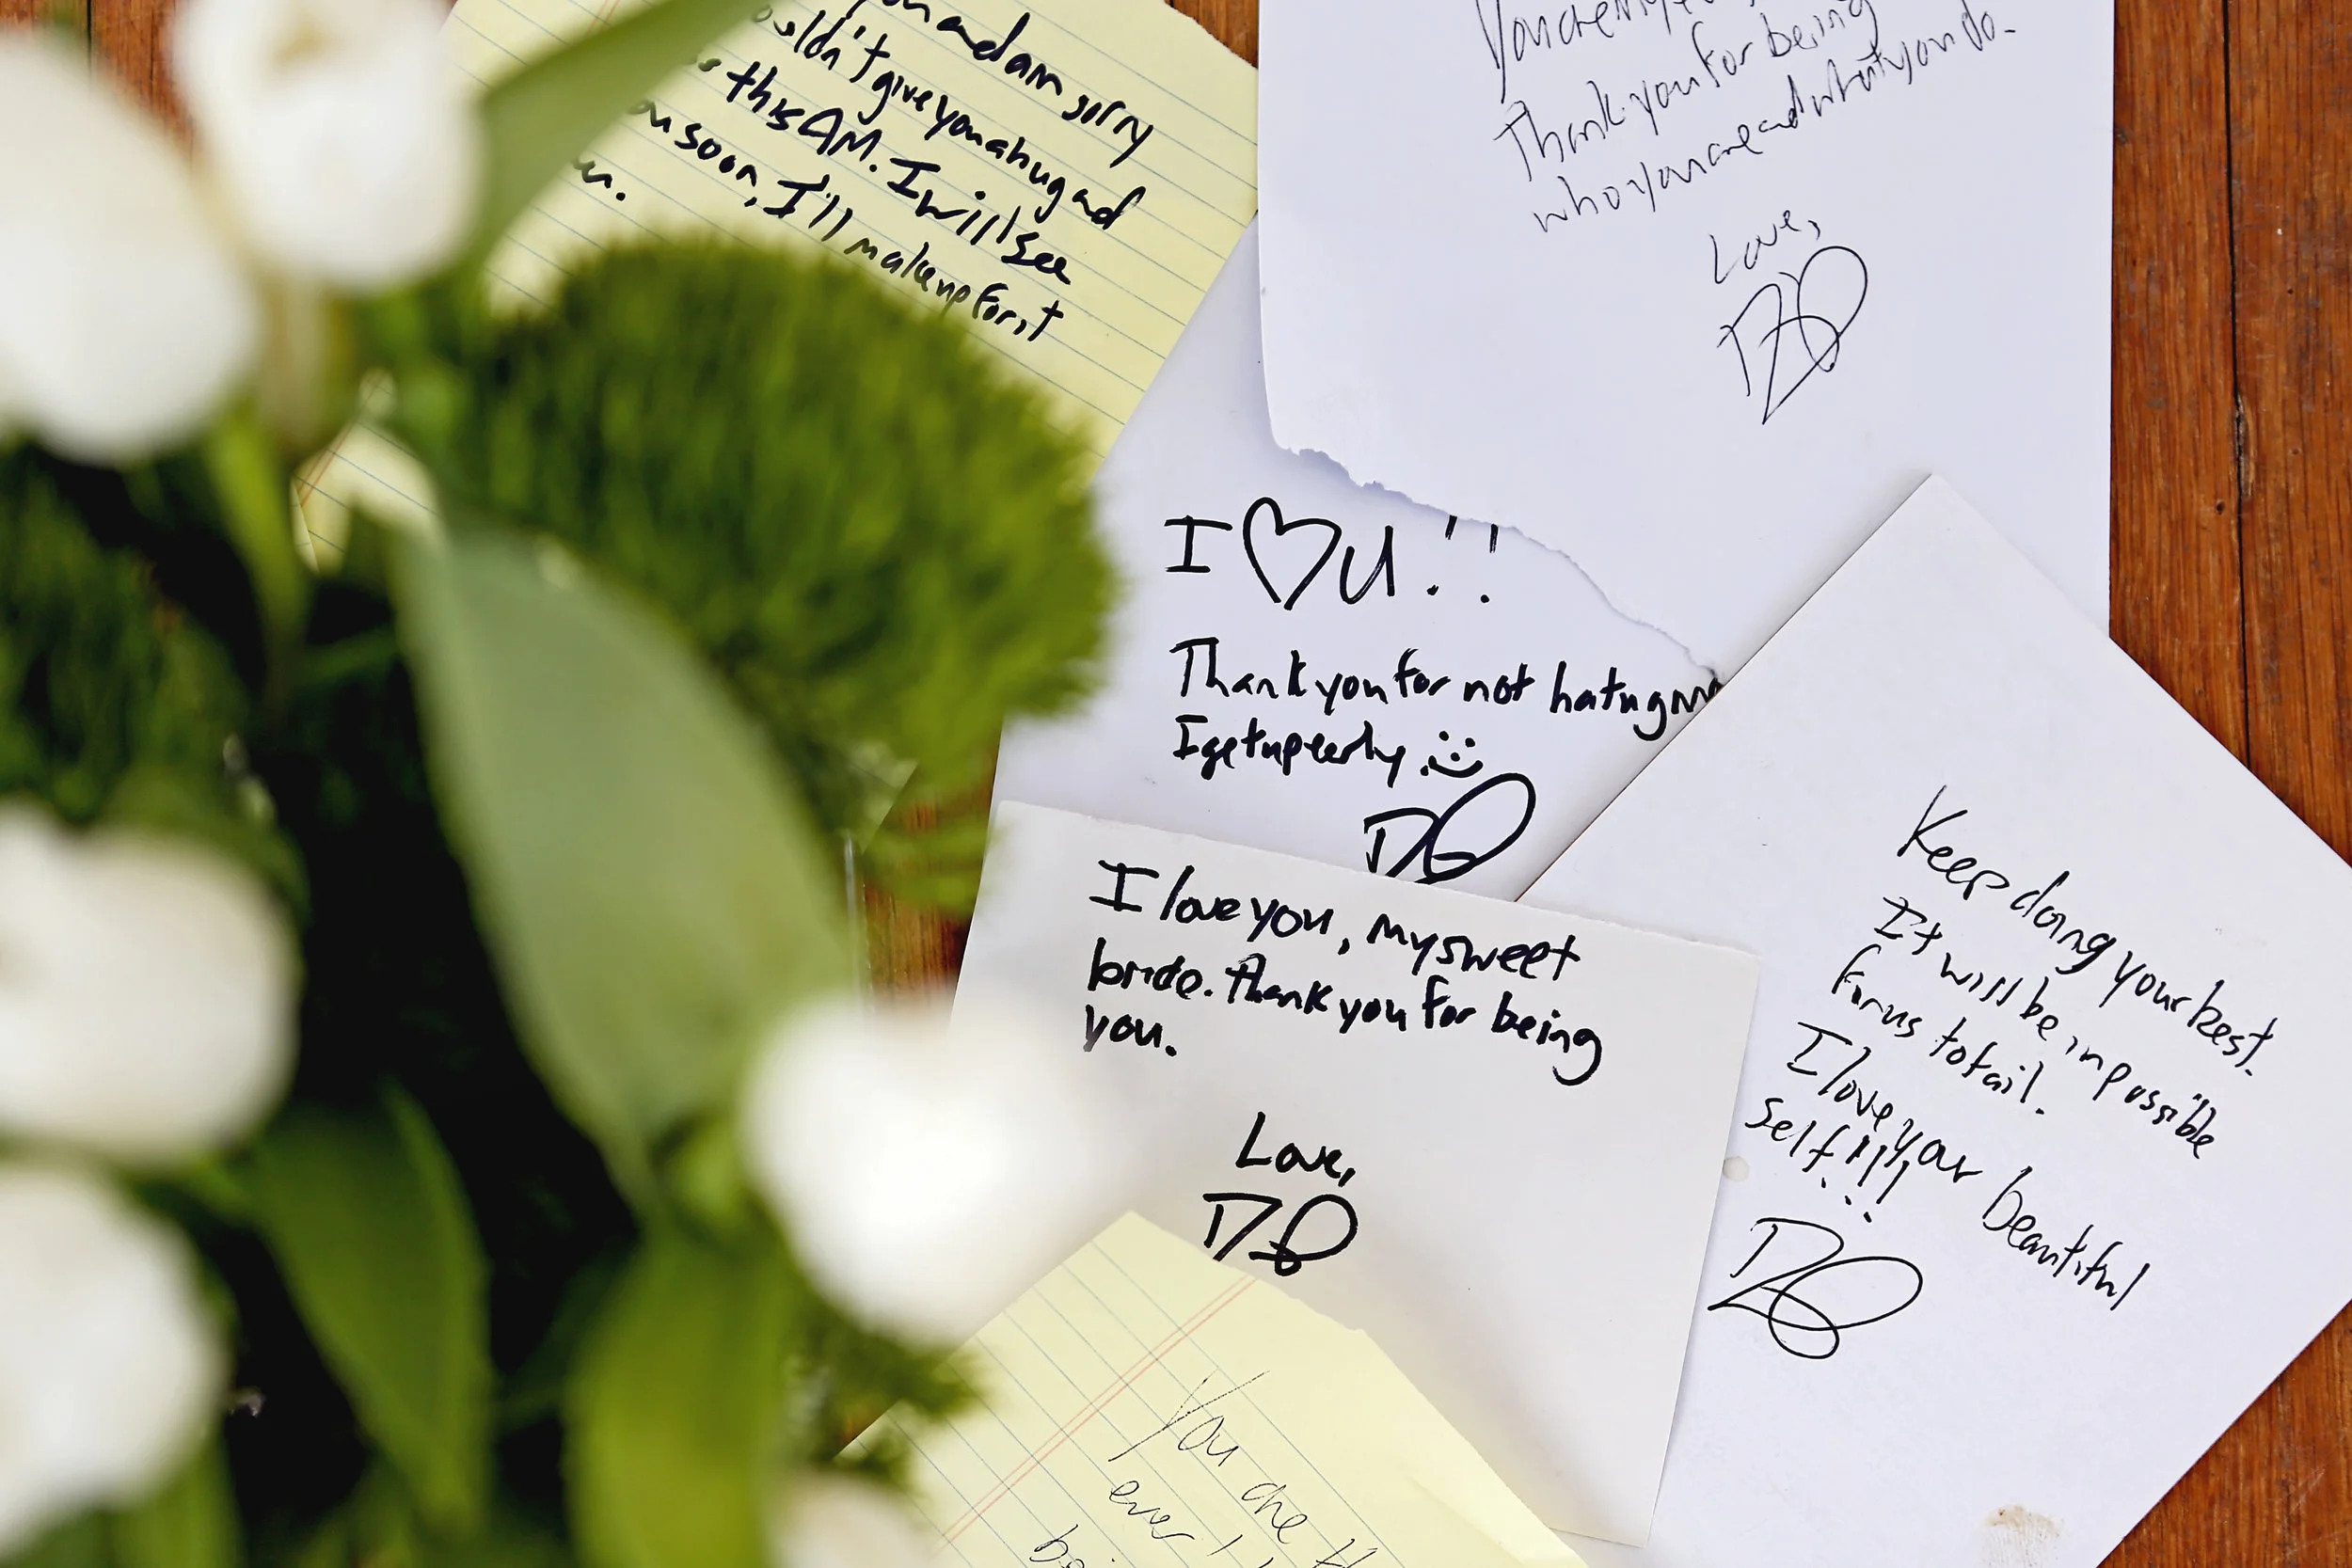 madam sorry
give you a hug and
this AM. I will see
soon, I'll make up for it
Thank you for being
who you are and what you do.
Love,
I ♡ U!!
Thank you for not hating
I get up early :)
I love you, my sweet
bride. Thank you for being
you.
Love,
Keep doing your best.
It will be impossible
for us to fail.
I love your beautiful
self!!!
You are
ever